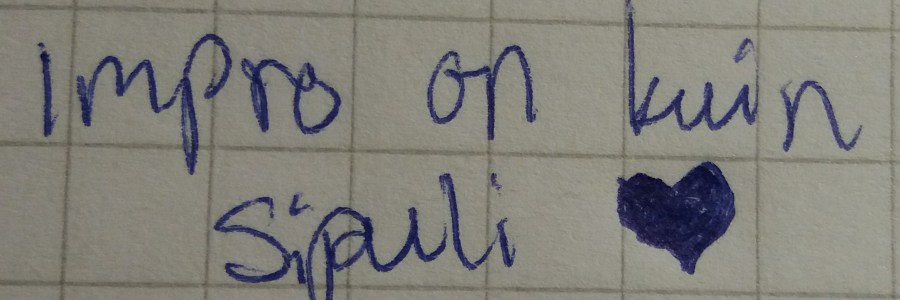 Impro on kuin
sipuli ♥